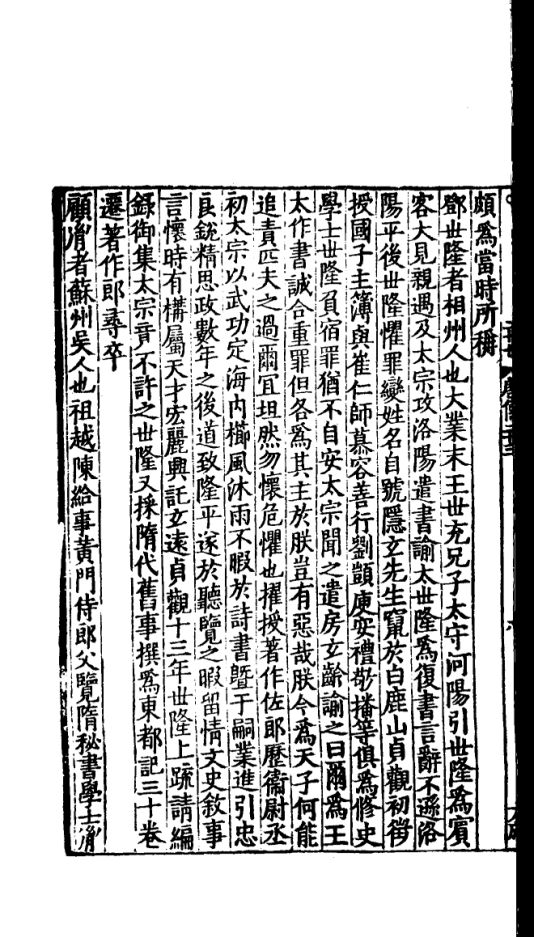 頗爲當時所稱
鄧世隆者相州人也大業末王世充兄子太守河陽引世隆爲賓
客大見親遇及太宗攻洛陽遣書諭太世隆爲復書言辭不遜洛
陽平後世隆懼罪變姓名自號隱玄先生竄於白鹿山貞觀初徵
授國子主簿與崔仁師慕容善行劉顗庾安禮敬播等俱爲修史
學士世隆負宿罪猶不自安太宗聞之遣房玄齡諭之曰爾爲王
太作書誠合重罪但各爲其主於朕豈有惡哉朕今爲天子何能
追責匹夫之過爾宜坦然勿懷危懼也擢授著作佐郎歷衞尉丞
初太宗以武功定海內櫛風沐雨不暇於詩書暨于嗣業進引忠
良銳精思政數年之後道致隆平遂於聽覽之暇留情文史敘事
言懷時有構屬天才宏麗興託玄遠貞觀十三年世隆上疏請編
錄御集太宗竟不許之世隆又採隋代舊事撰爲東都記三十卷
遷著作郎尋卒
顧胤者蘇州吳人也祖越陳給事黃門侍郎父覽隋秘書學士胤